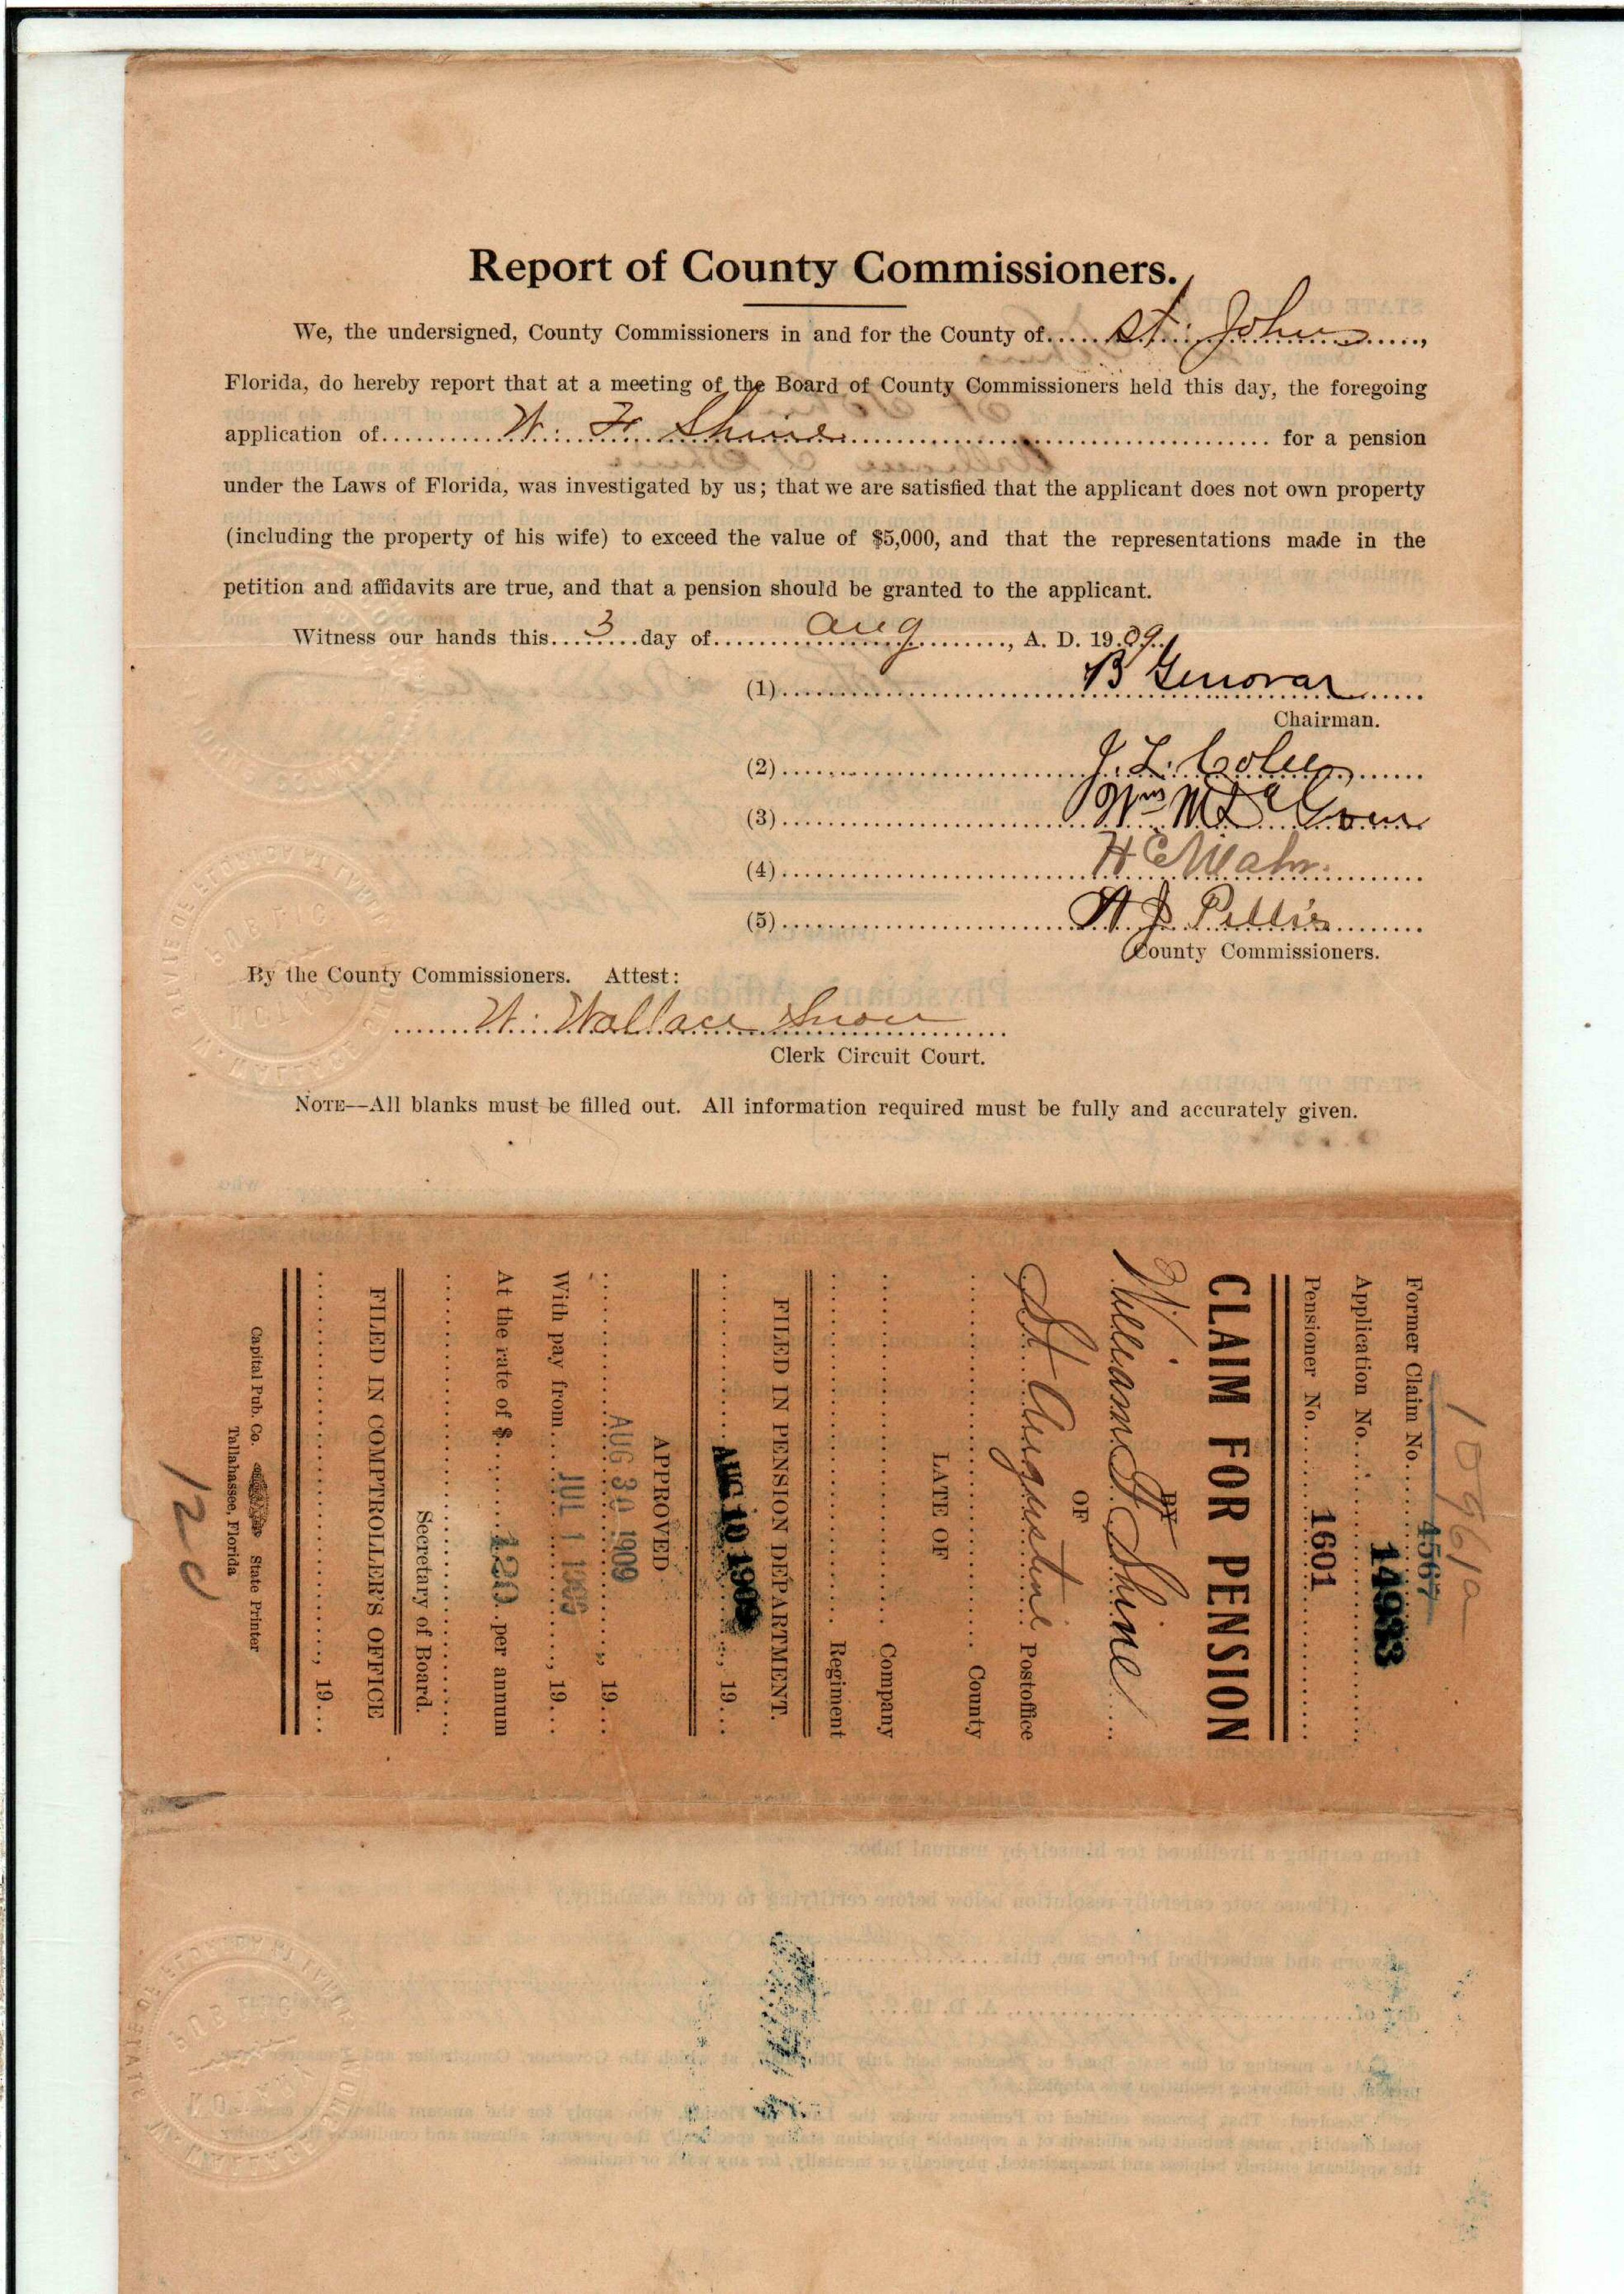 Report of County Commissioners.
We, the undersigned, County Commissioners in and for the County of..... St. Johns .....,
Florida, do hereby report that at a meeting of the Board of County Commissioners held this day, the foregoing
application of.......... W. F. Shine .......... for a pension
under the Laws of Florida, was investigated by us; that we are satisfied that the applicant does not own property
(including the property of his wife) to exceed the value of $5,000, and that the representations made in the
petition and affidavits are true, and that a pension should be granted to the applicant.
Witness our hands this.... 3 ....day of.......... Aug .........., A. D. 19.09..
(1).......... B Genovar ..........
Chairman.
(2).......... J. L. Colee ..........
(3)..........
(4)..........
(5).......... Pellis ..........
County Commissioners.
By the County Commissioners. Attest:
.......... W. Wallace Snow ..........
Clerk Circuit Court.
NOTE—All blanks must be filled out. All information required must be fully and accurately given.
Former Claim No..... 4567
Application No.....
Pensioner No..... 1601 .....
CLAIM FOR PENSION
BY
William F. Shine
OF
St Augustine Postoffice
.......... County
LATE OF
.......... Company
.......... Regiment
FILED IN PENSION DEPARTMENT.
.......... AUG 10 1909 ....., 19...
APPROVED
.......... AUG 30 1909 ....., 19...
With pay from.... JUL 1 1909 ....., 19...
At the rate of $..... 120 ..per annum
..........
Secretary of Board.
FILED IN COMPTROLLER'S OFFICE
.........., 19...
Capital Pub. Co. State Printer
Tallahassee, Florida
120